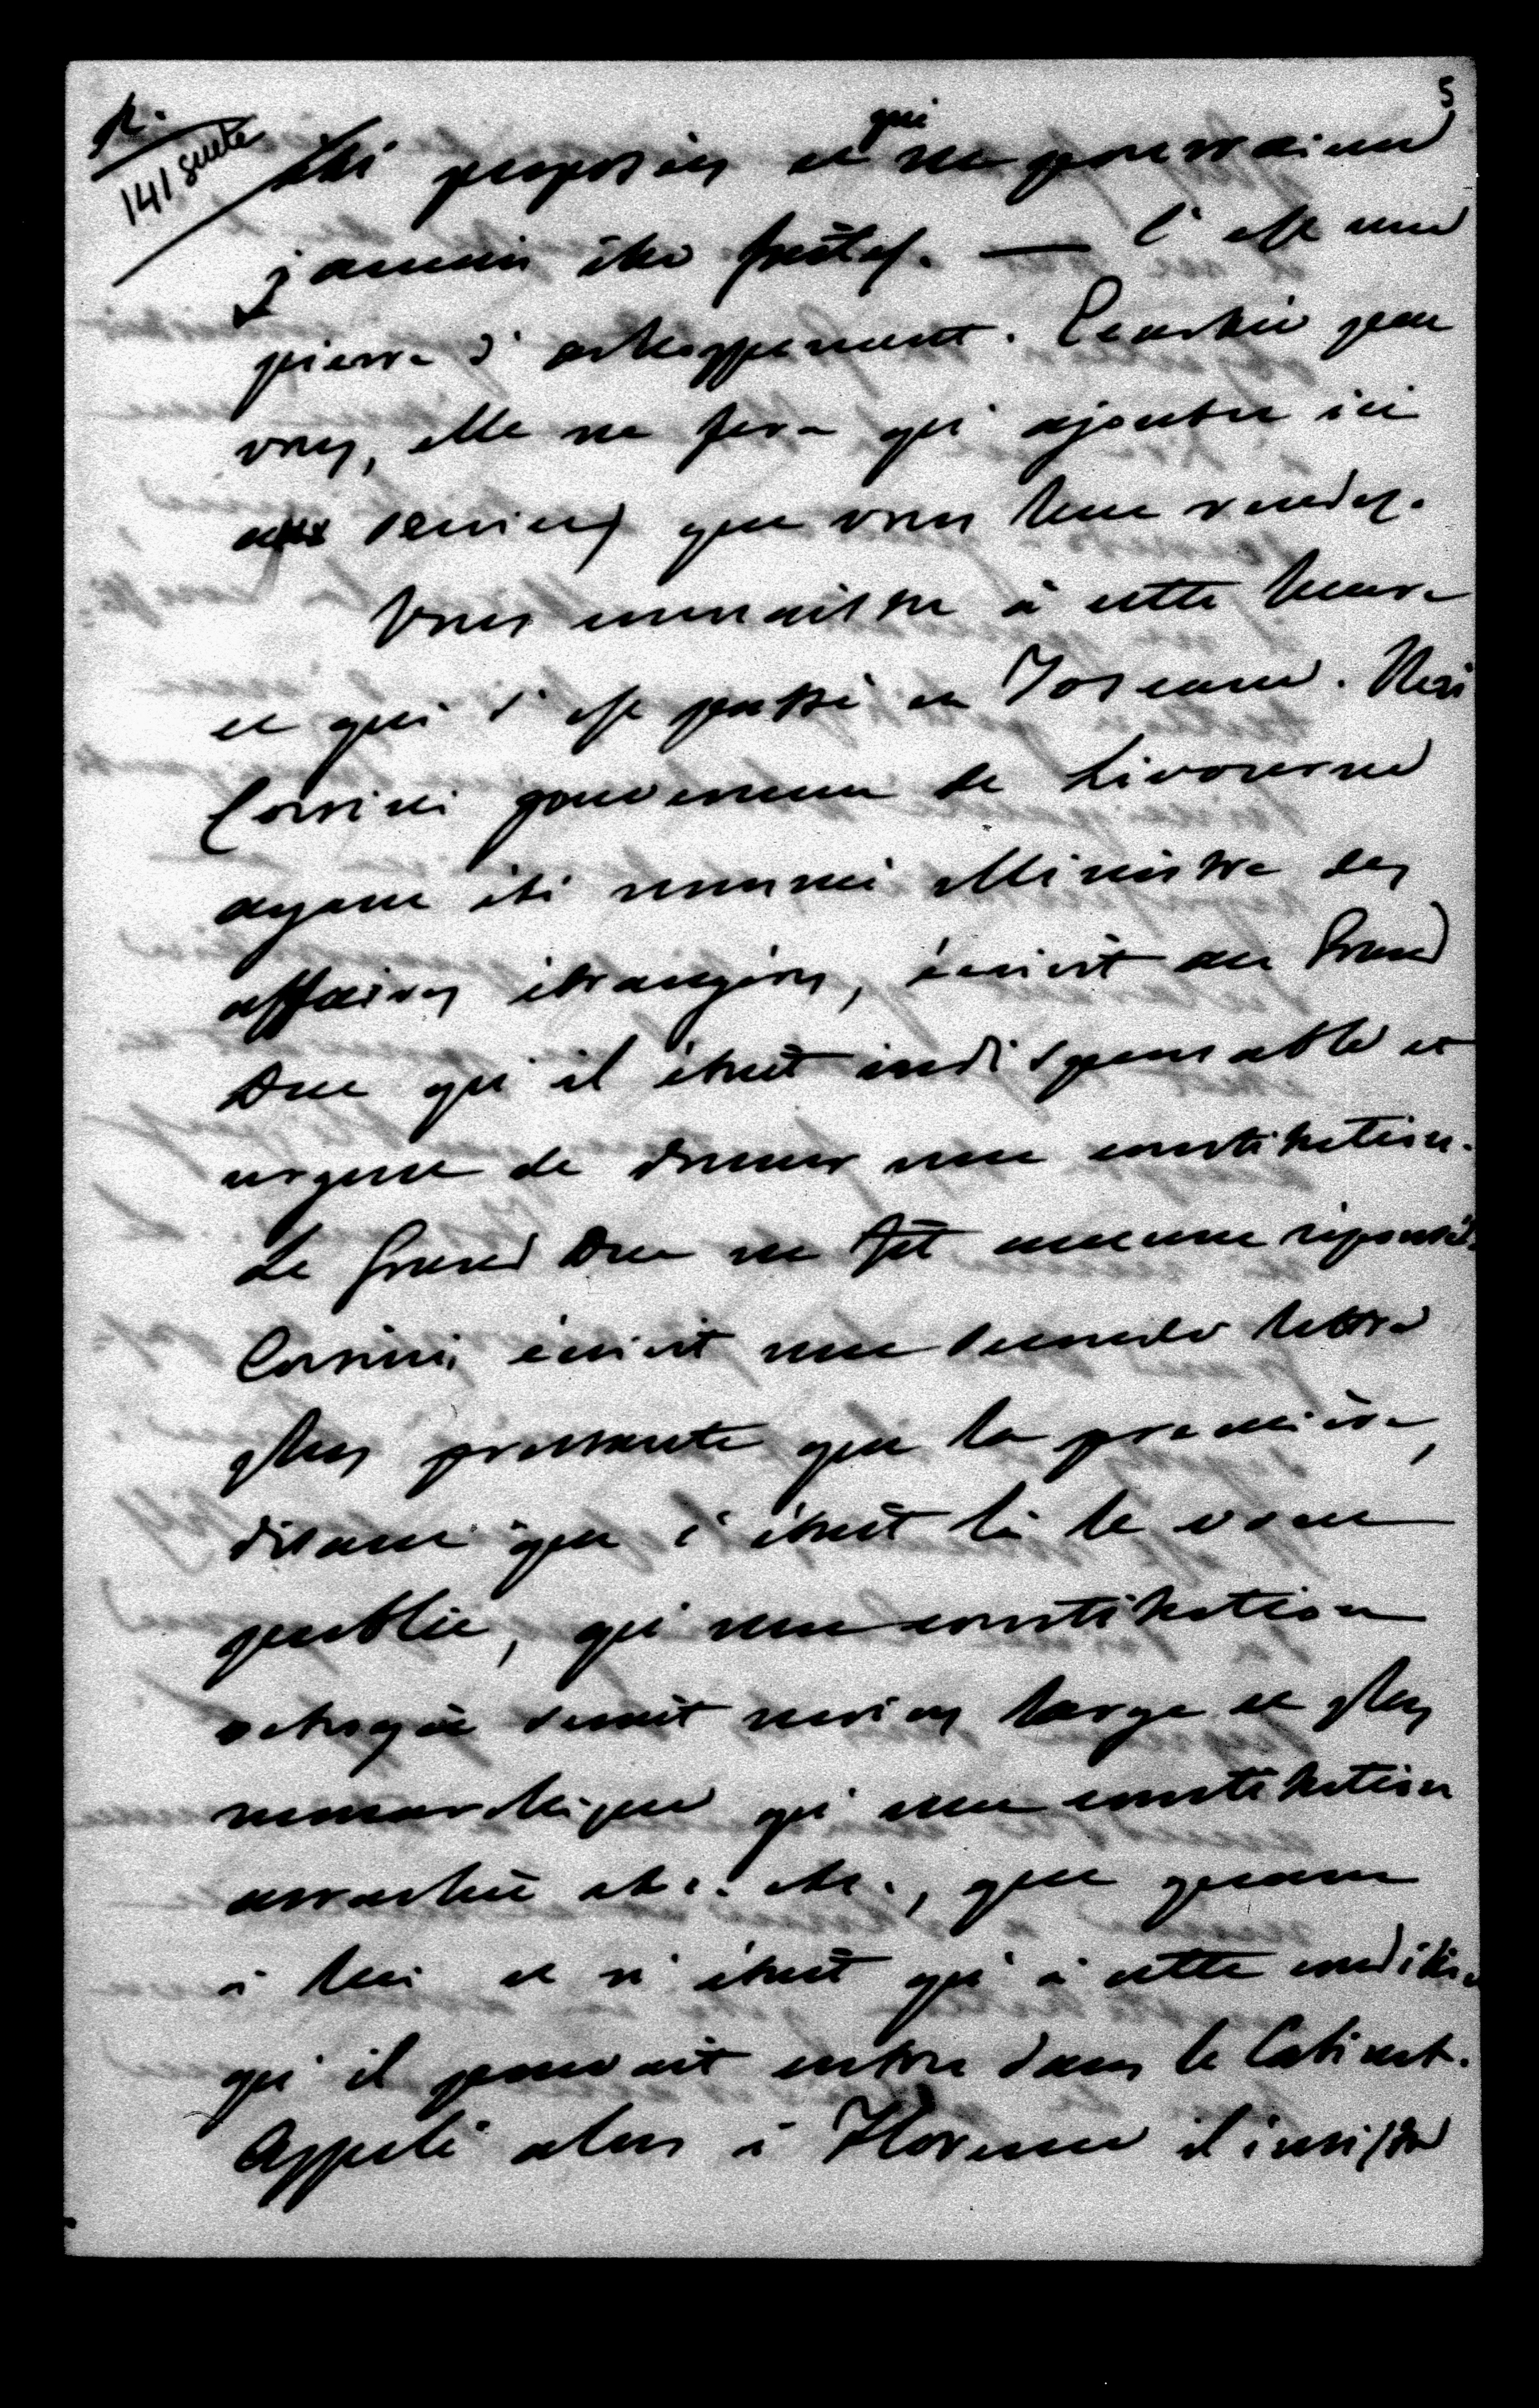 5
R.
141 suite
été proposées et qui ne pourraient
jamais être faites. — C'est une
pierre d'achoppement. Écartée par
vous, elle ne fera qu'ajouter ici
aux services que vous leur rendez.
Vous connaissez à cette heure
ce qui s'est passé en Toscane. Neri
Corsini gouverneur de Livourne
ayant été nommé Ministre des
affaires étrangères, écrivit au Grand
Duc qu'il était indispensable et
urgent de donner une constitution.
Le Grand Duc ne fit aucune réponse.
Corsini écrivit une seconde lettre
plus pressante que la première,
disant que c'était là le vœu
public, qu'une constitution
octroyée serait moins large et plus
monarchique qu'une constitution
arrachée etc. etc., que quant
à lui ce n'était qu'à cette condition
qu'il pouvait entrer dans le Cabinet.
Appelé alors à Florence il insista